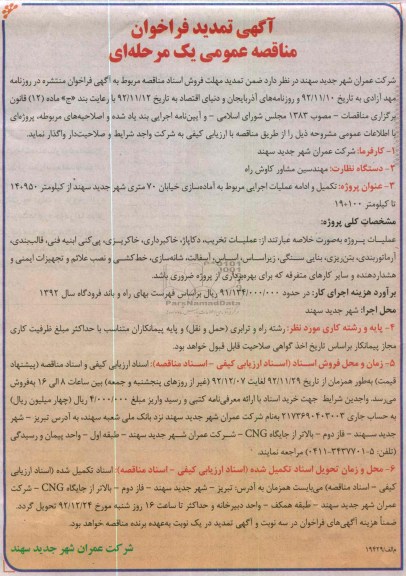 آگهی تمدید فراخوان
مناقصه عمومی یک مرحله‌ای
شرکت عمران شهر جدید سهند در نظر دارد ضمن تمدید مهلت فروش اسناد مناقصه مربوط به آگهی فراخوان منتشره در روزنامه
مهد آزادی به تاریخ ۹۲/۱۱/۱۰ و روزنامه‌های آذربایجان و دنیای اقتصاد به تاریخ ۹۲/۱۱/۱۲ با رعایت بند «ج» ماده (۱۲) قانون
برگزاری مناقصات – مصوب ۱۳۸۳ مجلس شورای اسلامی – و آیین‌نامه اجرایی بند یاد شده و اصلاحیه‌های مربوطه، پروژه‌ای
با اطلاعات عمومی مشروحه ذیل را از طریق مناقصه با ارزیابی کیفی به شرکت واجد شرایط و صلاحیت‌دار واگذار نماید.
۱- کارفرما: شرکت عمران شهر جدید سهند
۲- دستگاه نظارت: مهندسین مشاور کاوش راه
۳- عنوان پروژه: تکمیل و ادامه عملیات اجرایی مربوط به آماده‌سازی خیابان ۷۰ متری شهر جدید سهند از کیلومتر ۹۵۰+۱۴
تا کیلومتر ۱۰۰+۱۹
مشخصات کلی پروژه:
عملیات پروژه به‌صورت خلاصه عبارتند از: عملیات تخریب، دکاپاژ، خاکبرداری، خاکریزی، پی‌کنی ابنیه فنی، قالب‌بندی،
آرماتوربندی، بتن‌ریزی، بنایی سنگی، زیراساس، اساس، آسفالت، شانه‌سازی، خط‌کشی و نصب علائم و تجهیزات ایمنی و
هشداردهنده و سایر کارهای متفرقه که برای بهره‌برداری از پروژه ضروری باشد.
برآورد هزینه اجرای کار: در حدود ۹۱/۱۳۴/۰۰۰/۰۰۰ ریال براساس فهرست بهای راه و باند فرودگاه سال ۱۳۹۲
محل اجرا: شهر جدید سهند
۴- پایه و رشته کاری مورد نظر: رشته راه و ترابری (حمل و نقل) و پایه پیمانکاران متناسب با حداکثر مبلغ ظرفیت کاری
مجاز پیمانکار براساس تاریخ اخذ گواهی صلاحیت قابل قبول خواهد بود.
۵- زمان و محل فروش اسناد (اسناد ارزیابی کیفی – اسناد مناقصه): اسناد ارزیابی کیفی و اسناد مناقصه (پیشنهاد
قیمت) به‌طور همزمان از تاریخ ۹۲/۱۱/۲۹ لغایت ۹۲/۱۲/۰۷ (غیر از روزهای پنجشنبه و جمعه) بین ساعات ۸ الی ۱۶ به‌فروش
می‌رسد. واجدین شرایط جهت خرید اسناد با ارائه معرفی‌نامه کتبی و رسید واریز مبلغ ۴/۰۰۰/۰۰۰ ریال (چهار میلیون ریال)
به حساب جاری ۲۱۷۳۶۹۰۴۰۳۰۰۳ به‌نام شرکت عمران شهر جدید سهند نزد بانک ملی شعبه سهند، به آدرس تبریز – شهر
جدید سهند – فاز دوم – بالاتر از جایگاه CNG – شرکت عمران شهر جدید سهند – طبقه اول – واحد پیمان و رسیدگی
(تلفن: ۵-۳۴۳۷۷۰۱-۰۴۱۱) مراجعه نمایند.
۶- محل و زمان تحویل اسناد تکمیل شده (اسناد ارزیابی کیفی – اسناد مناقصه): اسناد تکمیل شده (اسناد ارزیابی
کیفی – اسناد مناقصه) می‌بایست همزمان به آدرس: تبریز – شهر جدید سهند – فاز دوم – بالاتر از جایگاه CNG – شرکت
عمران شهر جدید سهند – طبقه همکف – واحد دبیرخانه و حداکثر تا ساعت ۱۶ روز شنبه مورخ ۹۲/۱۲/۲۴ تحویل گردد.
ضمناً هزینه آگهی‌های فراخوان در سه نوبت و آگهی تمدید در یک نوبت به‌عهده برنده مناقصه خواهد بود.
م/الف/۱۹۴۲۹
شرکت عمران شهر جدید سهند
ParsNamadData